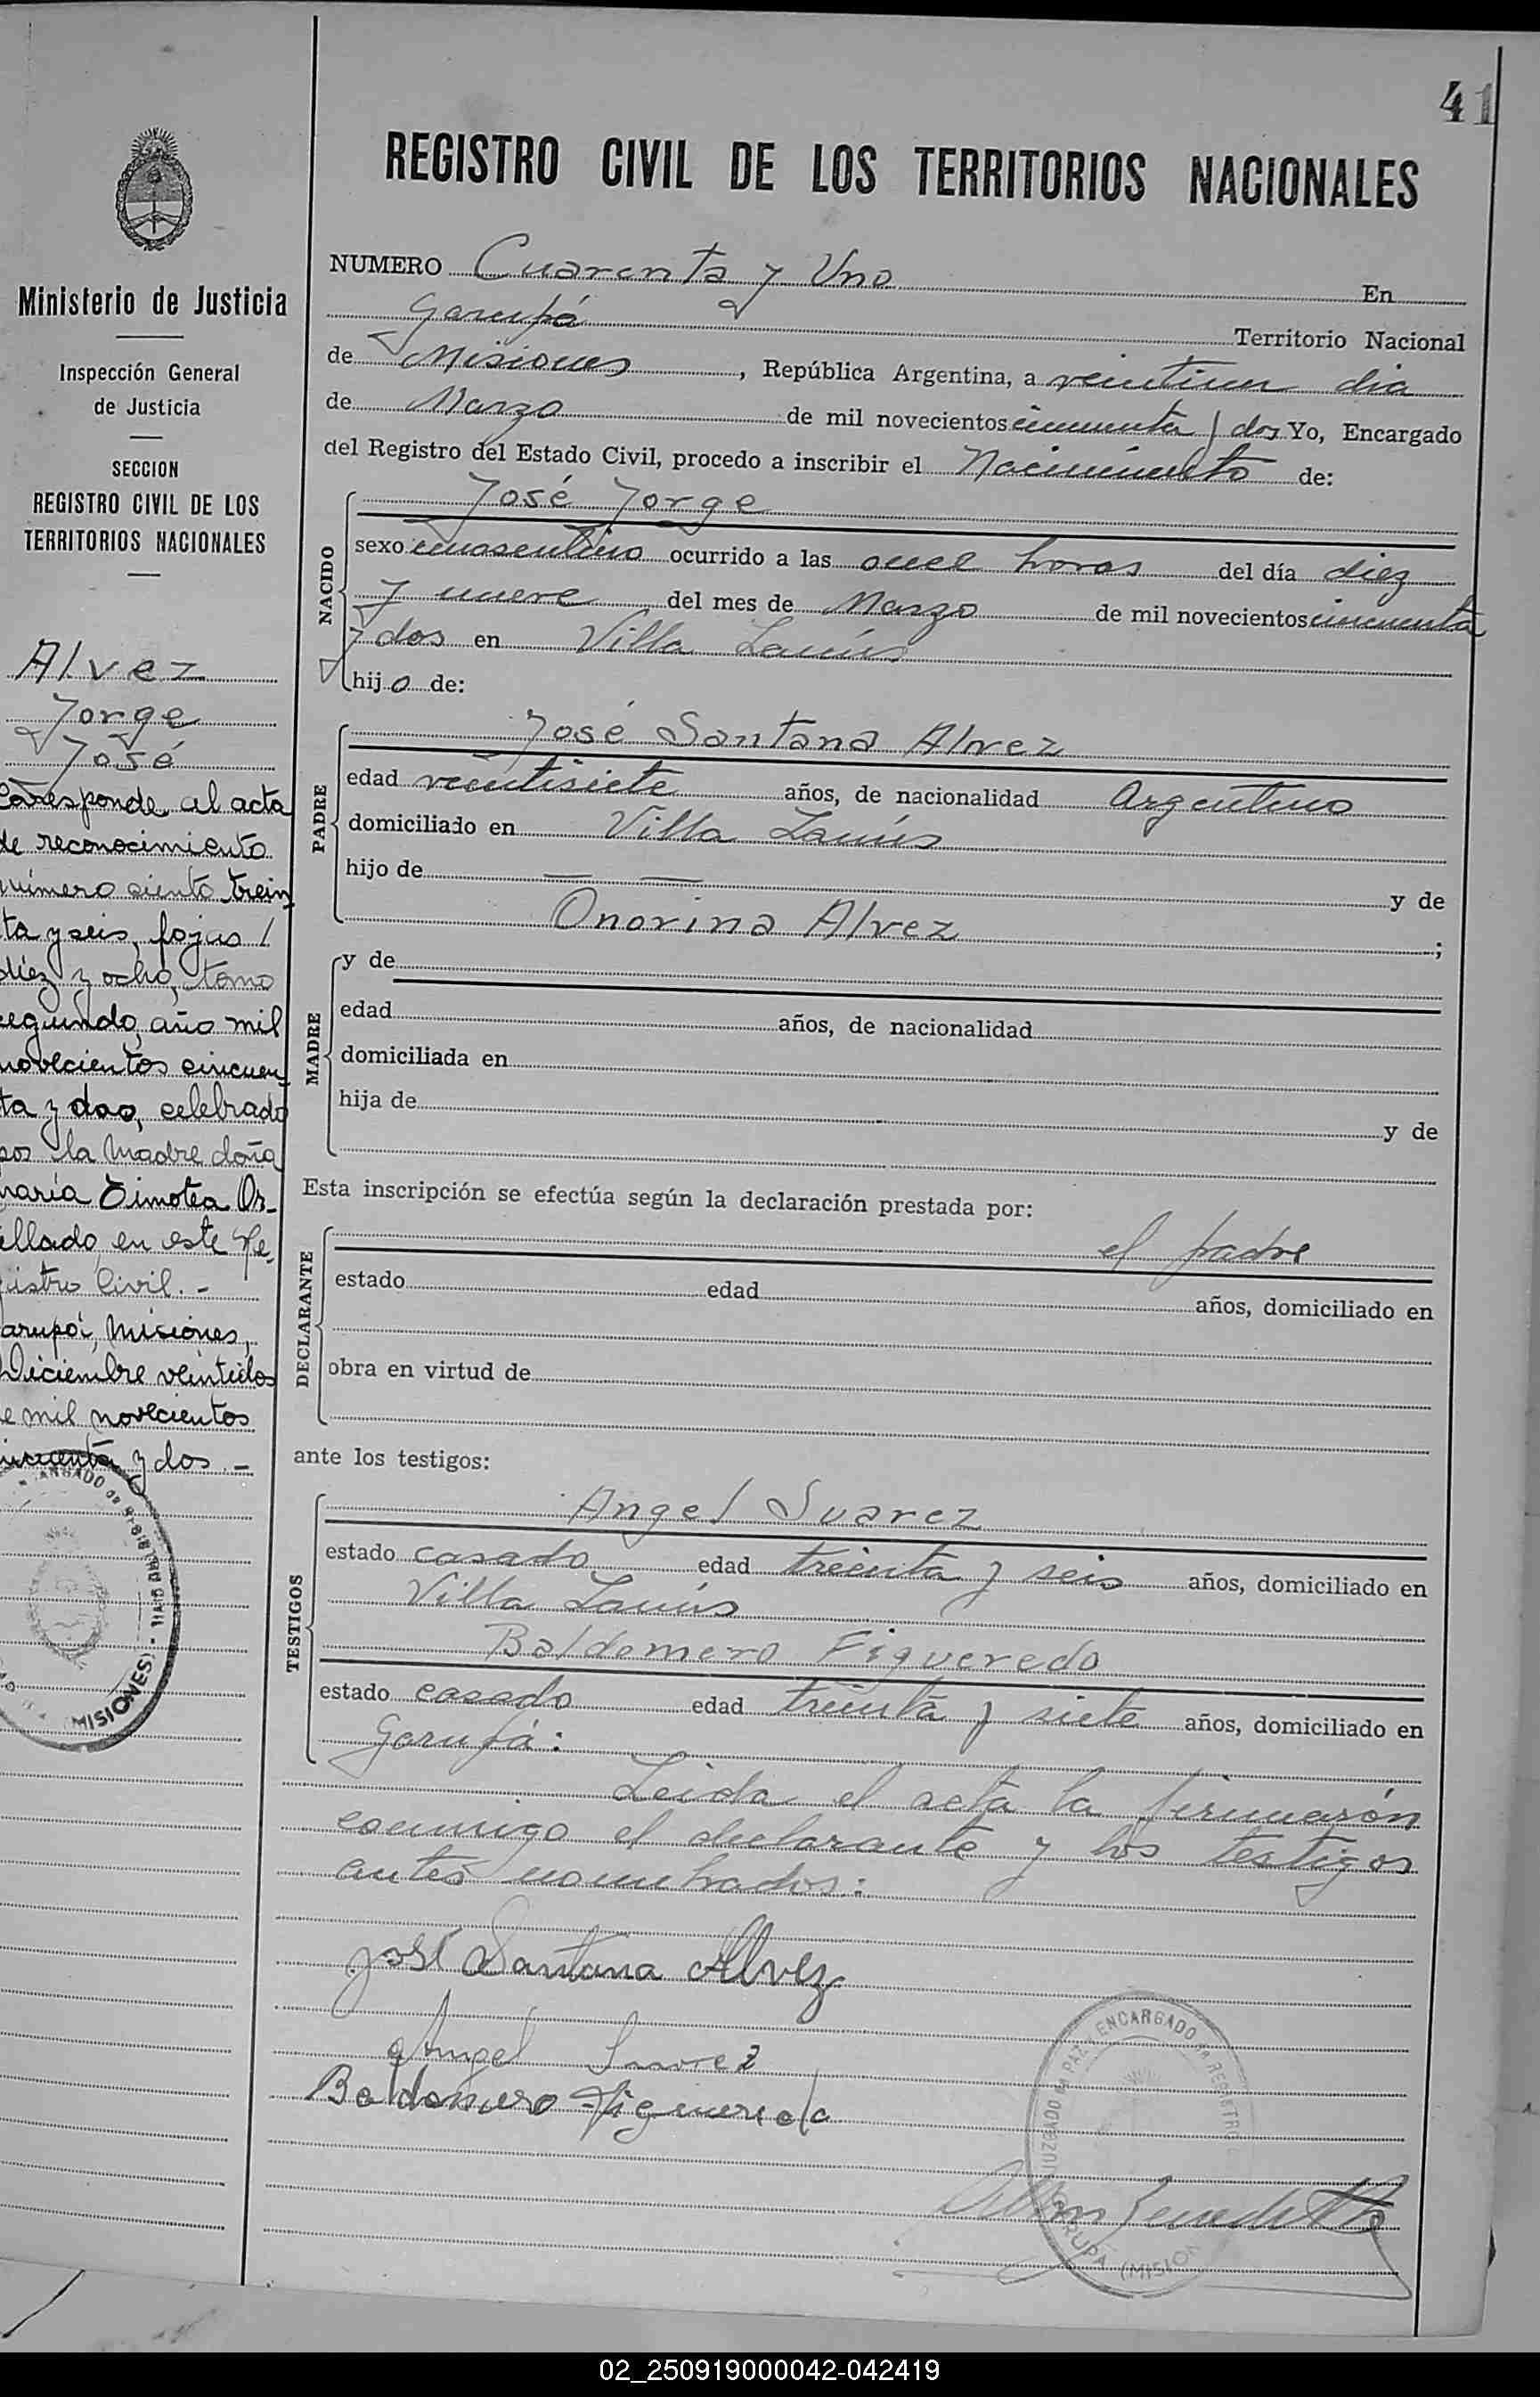 41
REGISTRO CIVIL DE LOS TERRITORIOS NACIONALES
Ministerio de Justicia
Inspección General
de Justicia
SECCION
REGISTRO CIVIL DE LOS
TERRITORIOS NACIONALES
Alvez
Jorge
José
Corresponde al acta
de reconocimiento
número ciento trein
ta y seis, fojas /
diez y ocho, tomo
segundo, año mil
novecientos cincuen
ta y dos, celebrado
por la Madre doña
María Timotea Or-
ellado, en este Re-
gistro Civil. -
arupá, Misiones,
Diciembre veintidos
e mil novecientos
incuenta y dos. -
MISIONES)
NUMERO Cuarenta y Uno En
Garupá Territorio Nacional
de Misiones, República Argentina, a veintiun dia
de Marzo de mil novecientos cincuenta y dos Yo, Encargado
del Registro del Estado Civil, procedo a inscribir el Nacimiento de:
José Jorge
NACIDO
sexo masculino ocurrido a las once horas del día diez
y nueve del mes de Marzo de mil novecientos cincuenta
y dos en Villa Lanús
hijo de:
José Santana Alvez
PADRE
edad veintisiete años, de nacionalidad Argentino
domiciliado en Villa Lanús
hijo de — — y de
Onorina Alvez ;
MADRE
y de
edad años, de nacionalidad
domiciliada en
hija de y de
Esta inscripción se efectúa según la declaración prestada por:
el padre
DECLARANTE
estado edad años, domiciliado en
obra en virtud de
ante los testigos:
Angel Suarez
TESTIGOS
estado casado edad treinta y seis años, domiciliado en
Villa Lanús
Baldomero Figueredo
estado casado edad treinta y siete años, domiciliado en
Garupá:
Leida el acta la firmarón
conmigo el declarante y los testigos
antes nombrados:
José Santana Alvez
Angel Suarez
Baldomero Figueredo
JUZGADO DE PAZ Y ENCARGADO DE REGISTRO
GARUPA (MISION
02_250919000042-042419